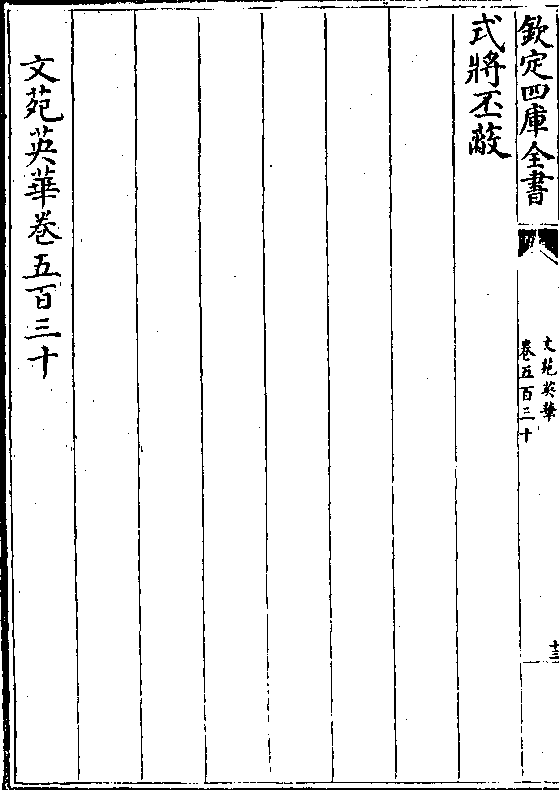 欽定四庫全書
文苑英華
卷五百三十
十三
式將丕蔽
文苑英華卷五百三十